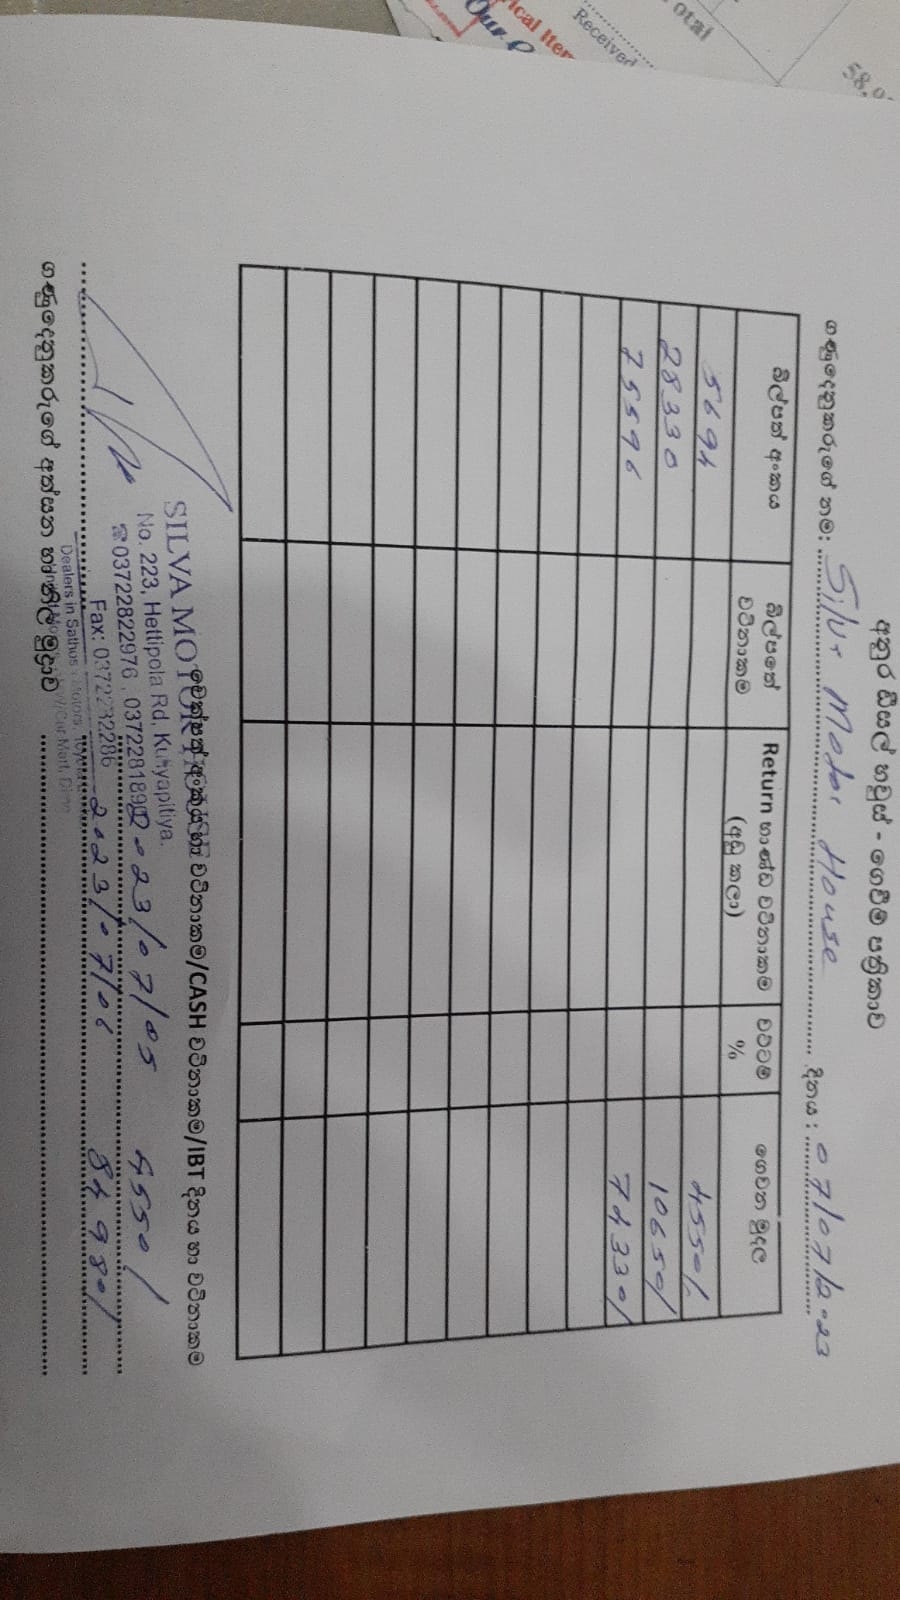 අනුර ඩීසල් හවුස් - ගෙවීම් පත්‍රිකාව
ගණුදෙනුකරුගේ නම: Silva Motor House දිනය: 07/07/2023
බිල්පත් අංකය බිල්පතේ වටිනාකම Return භාණ්ඩ වටිනාකම (අඩු කලා) වට්ටම් % ගෙවන මුදල
5694 4550/
28330 10650/
75596 74330/
චෙක්පත් අංකය හා වටිනාකම/CASH වටිනාකම/IBT දිනය හා වටිනාකම
SILVA MOTOR
No. 223, Hettipola Rd, Kuliyapitiya.
2023/07/05 4550/
☎0372282976, 037228189
Fax: 0372232286
2023/07/06 84980/
Dealers in Sathosa Motors,
ගණුදෙනුකරුගේ අත්සන හා නිල මුද්‍රාව
Our
ical Item
Received
otal
58,0